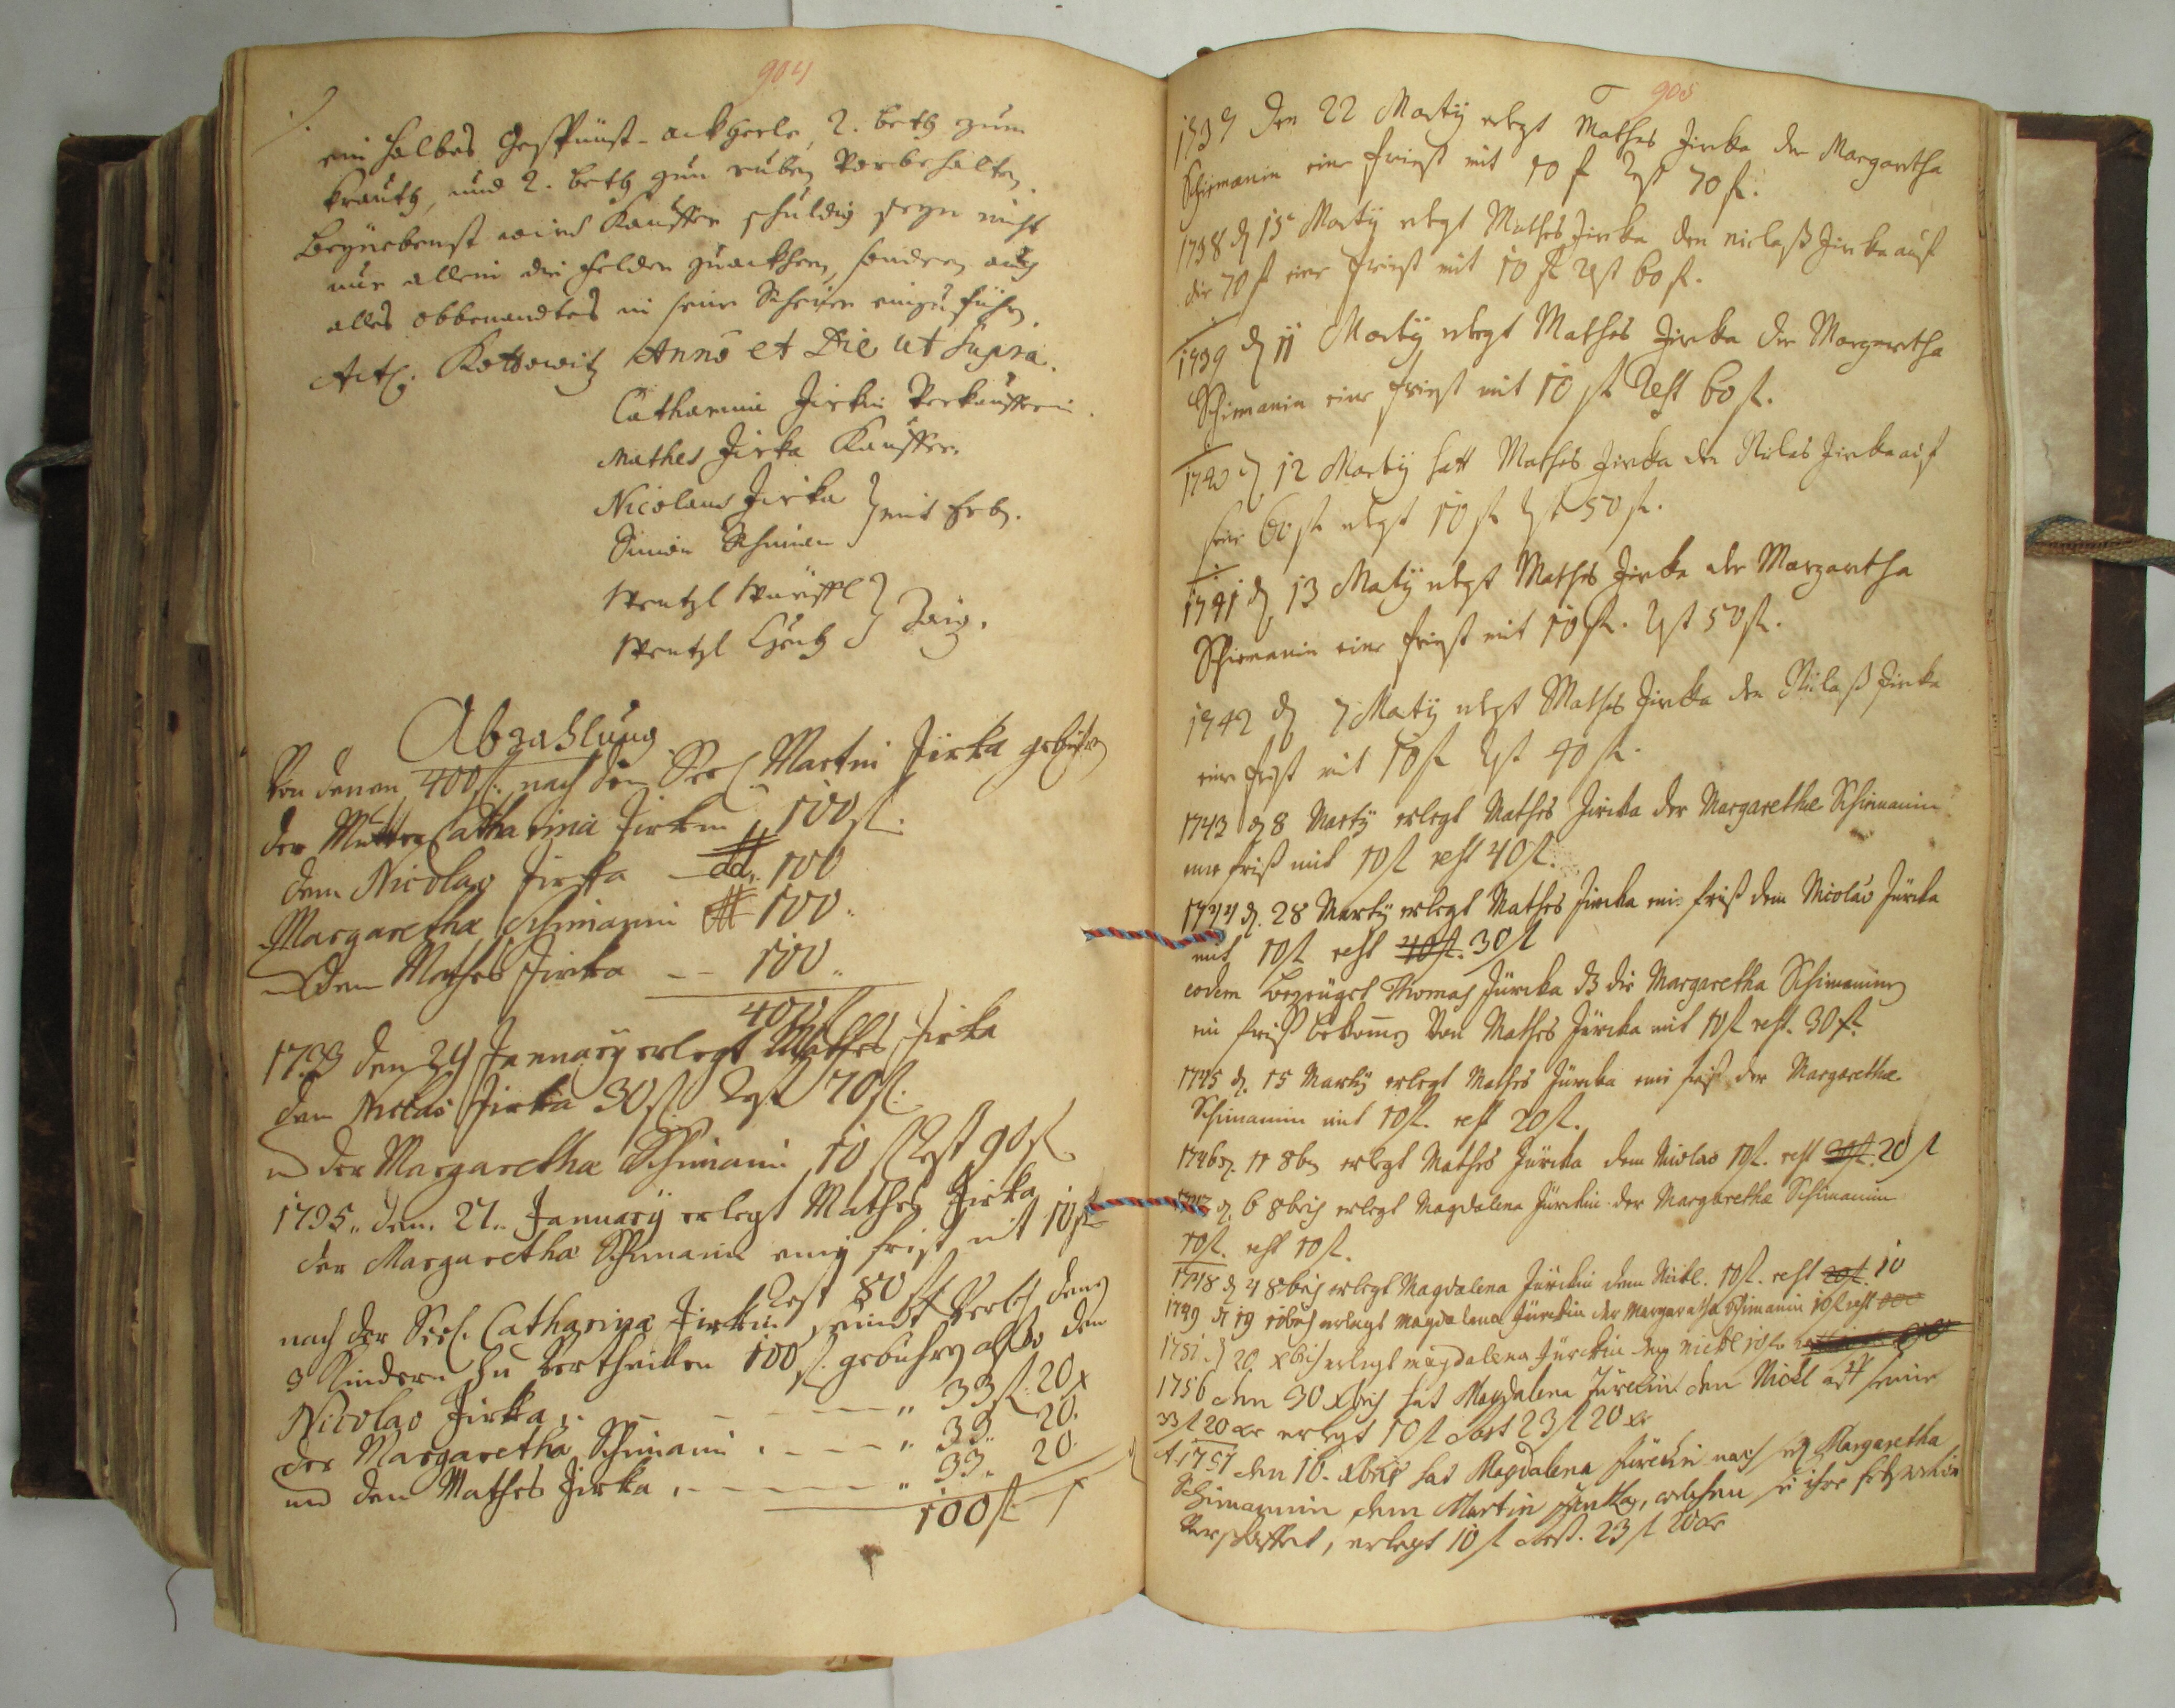 904
ein halbes Gespünst-ackherle, 2. beth zum
krauth, und 2. beth zun ruben Vorbehalten.
Beÿnebenst wird Kauffer schuldig seyn nicht
nur allein die felder zuackhern, sondern auch
alles obbenandtes in seine Scheüer einzuführen.
Act. Kottowitz Anno et Die ut supra.
Catharina Jirkin Verkaufferin.
Mathes Jirka Kauffer.
Nicolaus Jirka } mit Erb.
Simon Schiman
Wentzl } Zeug.
Wentzl
Abzahlung
Von denen 400 fl. nach dem Seel. Martin Jirka gebühren
der Mutter Catharina Jirkin 100 fl.
dem Nicolao Jirka dd. 100
Margaretha Schimanin 100
und dem Mathes Jirka -- 100
400 fl
1733 den 29 January erlegt Mathes Jirka
dem Niclas Jirka 30 fl. Rest 70 fl.
und der Margaretha Schimanin 10 fl Rest 90 fl.
1735. den. 27. January erlegt Mathes Jirka
der Margaretha Schimanin eine frist mit 10 fl
Rest 80 fl
nach der Seel. Catharina Jirkin seindt Verbl. denen
3 Kindern zu Vertheillen 100 fl. gebühren also dem
Nicolao Jirka, - - - - " 33 fl. 20 x
der Margaretha Schimanin . - - - " 33. 20.
und dem Mathes Jirka . - - - - " 33. 20.
100 fl.
905
1737 den 22 Martÿ erlegt Mathes Jirka der Margaretha
Schimanin eine frist mit 10 f Rest 70 fl.
1738 d 15 Martÿ erlegt Mathes Jirka den niclaß Jirka auf
die 70 fl eine frist mit 10 fl Rest 60 fl.
1739 d 11 Martÿ erlegt Mathes Jirka der Margaretha
Schimanin eine frist mit 10 fl Rest 60 fl.
1740 d 12 Martÿ hatt Mathes Jirka den Niclas Jirka auf
seine 60 fl erlegt 10 fl Rest 50 fl.
1741 d 13 Martÿ erlegt Mathes Jirka der Margaretha
Schimanin eine frist mit 10 fl. Rest 50 fl.
1742 d 7 Martÿ erlegt Mathes Jirka den Niclaß Jirka
eine frist mit 10 fl Rest 40 fl.
1743 d 8 Martÿ erlegt Mathes Jircka der Margaretha Schimanin
eine friß mit 10 fl rest 40 fl.
1744 d. 28 Martÿ erlegt Mathes Jircka eine friß dem Nicolao Jürcka
mit 10 fl rest 40 fl. 30 fl
eodem bezeüget Thomas Jürcka dß die Margaretha Schimanin
ein friß bekomen Von Mathes Jürcka mit 10 fl rest. 30 fl.
1745 d. 15 Martÿ erlegt Mathes Jürcka eine friß der Margaretha
Schimanin mit 10 fl. rest 20 fl.
1746 d. 11 8br erlegt Mathes Jürcka dem Nicolao 10 fl. rest 30 fl. 20 fl
1747 d. 6 8bris erlegt Magdalena Jürckin der Margaretha Schimanin
10 fl. rest 10 fl.
1748 d 4 8bris erlegt Magdalena Jürckin dem Nickl. 10 fl. rest 20 fl. 10
1749 d 19 10bris erlegt Magdalena Jürckin der Margaretha Schimanin 10 fl rest 000
1751 d 20 xbris erlegt magdalena Jürckin dem nickl 10 fl
1756 den 30 xbris hat Magdalena Jürckin den Nickl auf seine
33 fl 20 xr erlegt 10 fl Rest 23 fl 20 xr
A. 1757 den 10. xbris hat Magdalena Jürckin nach der Margaretha
Schimanin dem Martin, welchen sie ihre
Verschaffet, erlegt 10 fl Rest. 23 fl 20 xr